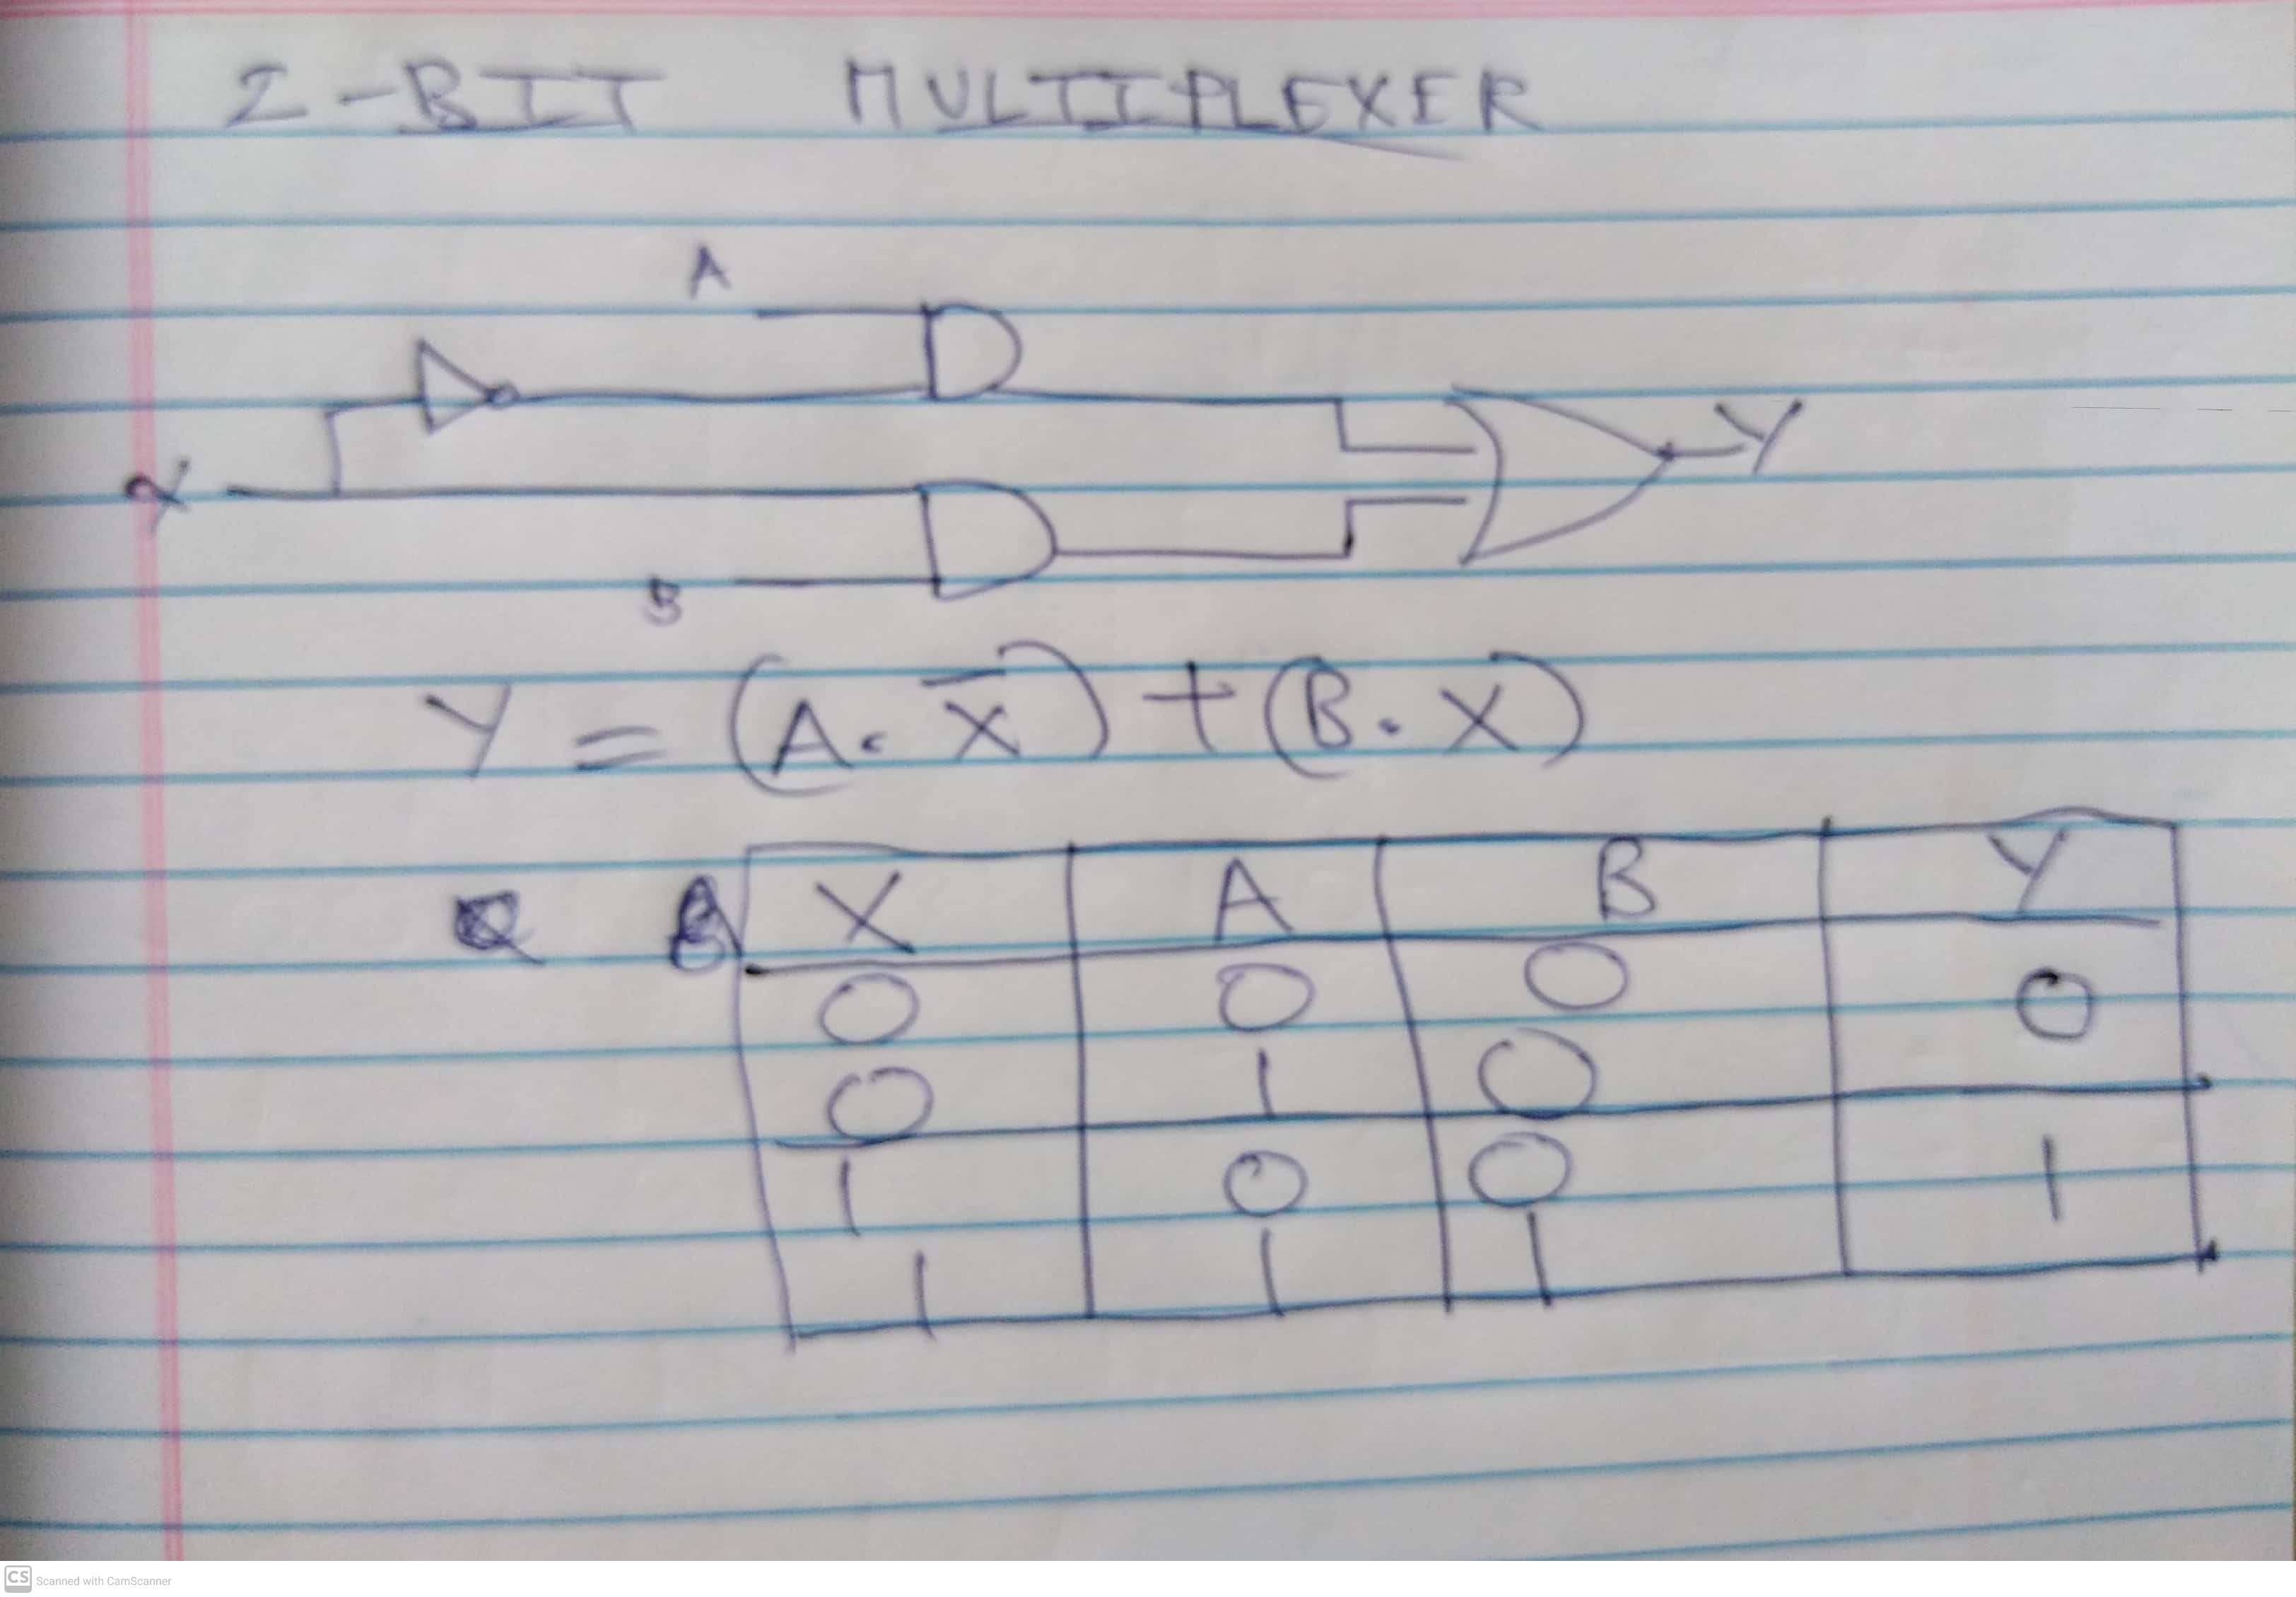 2-BIT MULTIPLEXER
A
X
Y
B
Y = (A. X̅) + (B. X)
X A B Y
0 0 0 0
0 1 0
1 0 0 1
1 1 1
CS Scanned with CamScanner